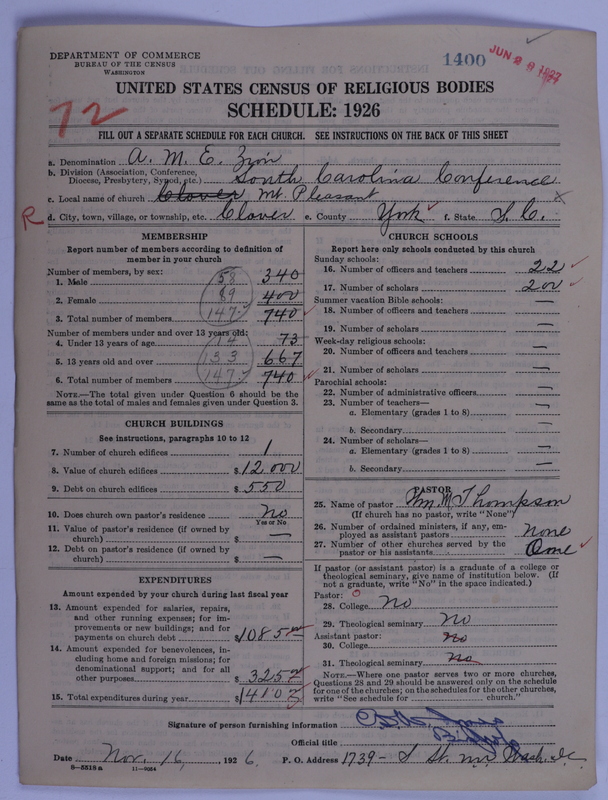 DEPARTMENT OF COMMERCE
BUREAU OF THE CENSUS
WASHINGTON
1400
JUN 28 1927
UNITED STATES CENSUS OF RELIGIOUS BODIES
SCHEDULE: 1926
72
FILL OUT A SEPARATE SCHEDULE FOR EACH CHURCH. SEE INSTRUCTIONS ON THE BACK OF THIS SHEET
a. Denomination A. M. E. Zion
b. Division (Association, Conference, Diocese, Presbytery, Synod, etc.) South Carolina Conference
c. Local name of church Clover Mt. Pleasant x
R d. City, town, village, or township, etc. Clover e. County York f. State S. C.
MEMBERSHIP
Report number of members according to definition of member in your church
Number of members, by sex:
1. Male 58 340
2. Female 89 400
3. Total number of members 147 740
Number of members under and over 13 years old:
4. Under 13 years of age 14 73
5. 13 years old and over 133 667
6. Total number of members 147 740
NOTE.—The total given under Question 6 should be the same as the total of males and females given under Question 3.
CHURCH BUILDINGS
See instructions, paragraphs 10 to 12
7. Number of church edifices 1
8. Value of church edifices $ 12,000
9. Debt on church edifices $ 550
10. Does church own pastor's residence No
Yes or No
11. Value of pastor's residence (if owned by church) $ —
12. Debt on pastor's residence (if owned by church) $ —
EXPENDITURES
Amount expended by your church during last fiscal year
13. Amount expended for salaries, repairs, and other running expenses; for improvements or new buildings; and for payments on church debt $ 1085
14. Amount expended for benevolences, including home and foreign missions; for denominational support; and for all other purposes $ 325
15. Total expenditures during year $ 1410
CHURCH SCHOOLS
Report here only schools conducted by this church
Sunday schools:
16. Number of officers and teachers 22
17. Number of scholars 200
Summer vacation Bible schools:
18. Number of officers and teachers —
19. Number of scholars —
Week-day religious schools:
20. Number of officers and teachers —
21. Number of scholars —
Parochial schools:
22. Number of administrative officers —
23. Number of teachers—
a. Elementary (grades 1 to 8) —
b. Secondary —
24. Number of scholars—
a. Elementary (grades 1 to 8) —
b. Secondary —
PASTOR
25. Name of pastor Wm. M. Thompson
(If church has no pastor, write "None")
26. Number of ordained ministers, if any, employed as assistant pastors none
27. Number of other churches served by the pastor or his assistants One
If pastor (or assistant pastor) is a graduate of a college or theological seminary, give name of institution below. (If not a graduate, write "No" in the space indicated.)
Pastor:
28. College No
29. Theological seminary No
Assistant pastor: No
30. College
31. Theological seminary No
NOTE.—Where one pastor serves two or more churches, Questions 28 and 29 should be answered only on the schedule for one of the churches; on the schedules for the other churches, write "See schedule for church."
Signature of person furnishing information
Official title Bishop
Date Nov. 16, 1926. P. O. Address 1739- S St. nw Wash. D.C.
8—5518a 11—9064